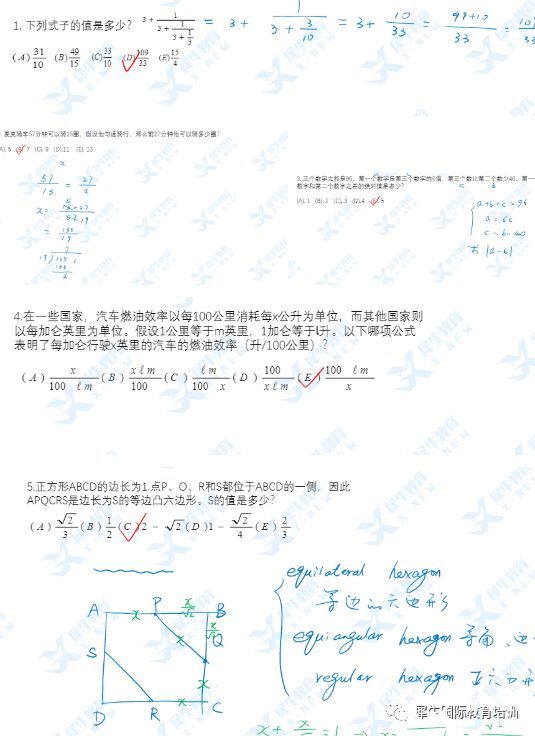 1. 下列式子的值是多少? 3+1/(3+1/(3+1/3)) = 3+ 1/(3+3/10) = 3+ 10/33 = (99+10)/33 =
(A) 31/10 (B) 49/15 (C) 33/10 (D) 109/33 (E) 15/4
麦克骑车57分钟可以骑15圈, 假设他匀速骑行, 那么前27分钟他可以骑多少圈?
A). 5 (B). 7 (C). 9 (D).11 (E). 13
x
57/15 = 27/x
3.三个数字之和是96。第一个数字是第三个数字的6倍, 第三个数比第二个数少40。第一
数字和第二个数字之差的绝对值是多少?
c b
(A). 1 (B). 2 (C). 3 (D).4 (E). 5
a+b+c=96
a=6c
c=b-40
求 |a-b|
= 135/19
4.在一些国家，汽车燃油效率以每100公里消耗每x公升为单位，而其他国家则
以每加仑英里为单位。假设1公里等于m英里，1加仑等于l升。以下哪项公式
表明了每加仑行驶x英里的汽车的燃油效率（升/100公里）?
(A) x/(100 ℓm) (B) xℓm/100 (C) ℓm/(100 x) (D) 100/(xℓm) (E) 100 ℓm/x
5.正方形ABCD的边长为1.点P、O、R和S都位于ABCD的一侧, 因此
APQCRS是边长为S的等边凸六边形。S的值是多少?
(A) √2/3 (B) 1/2 (C) 2 - √2 (D) 1 - √2/4 (E) 2/3
equilateral hexagon
等边的六边形
equiangular hexagon 等角
regular hexagon 正六边形
A P B
x x/√2
x/√2
x Q
S
x
D R x C
犀牛国际教育培训
犀牛教育
X-NEW